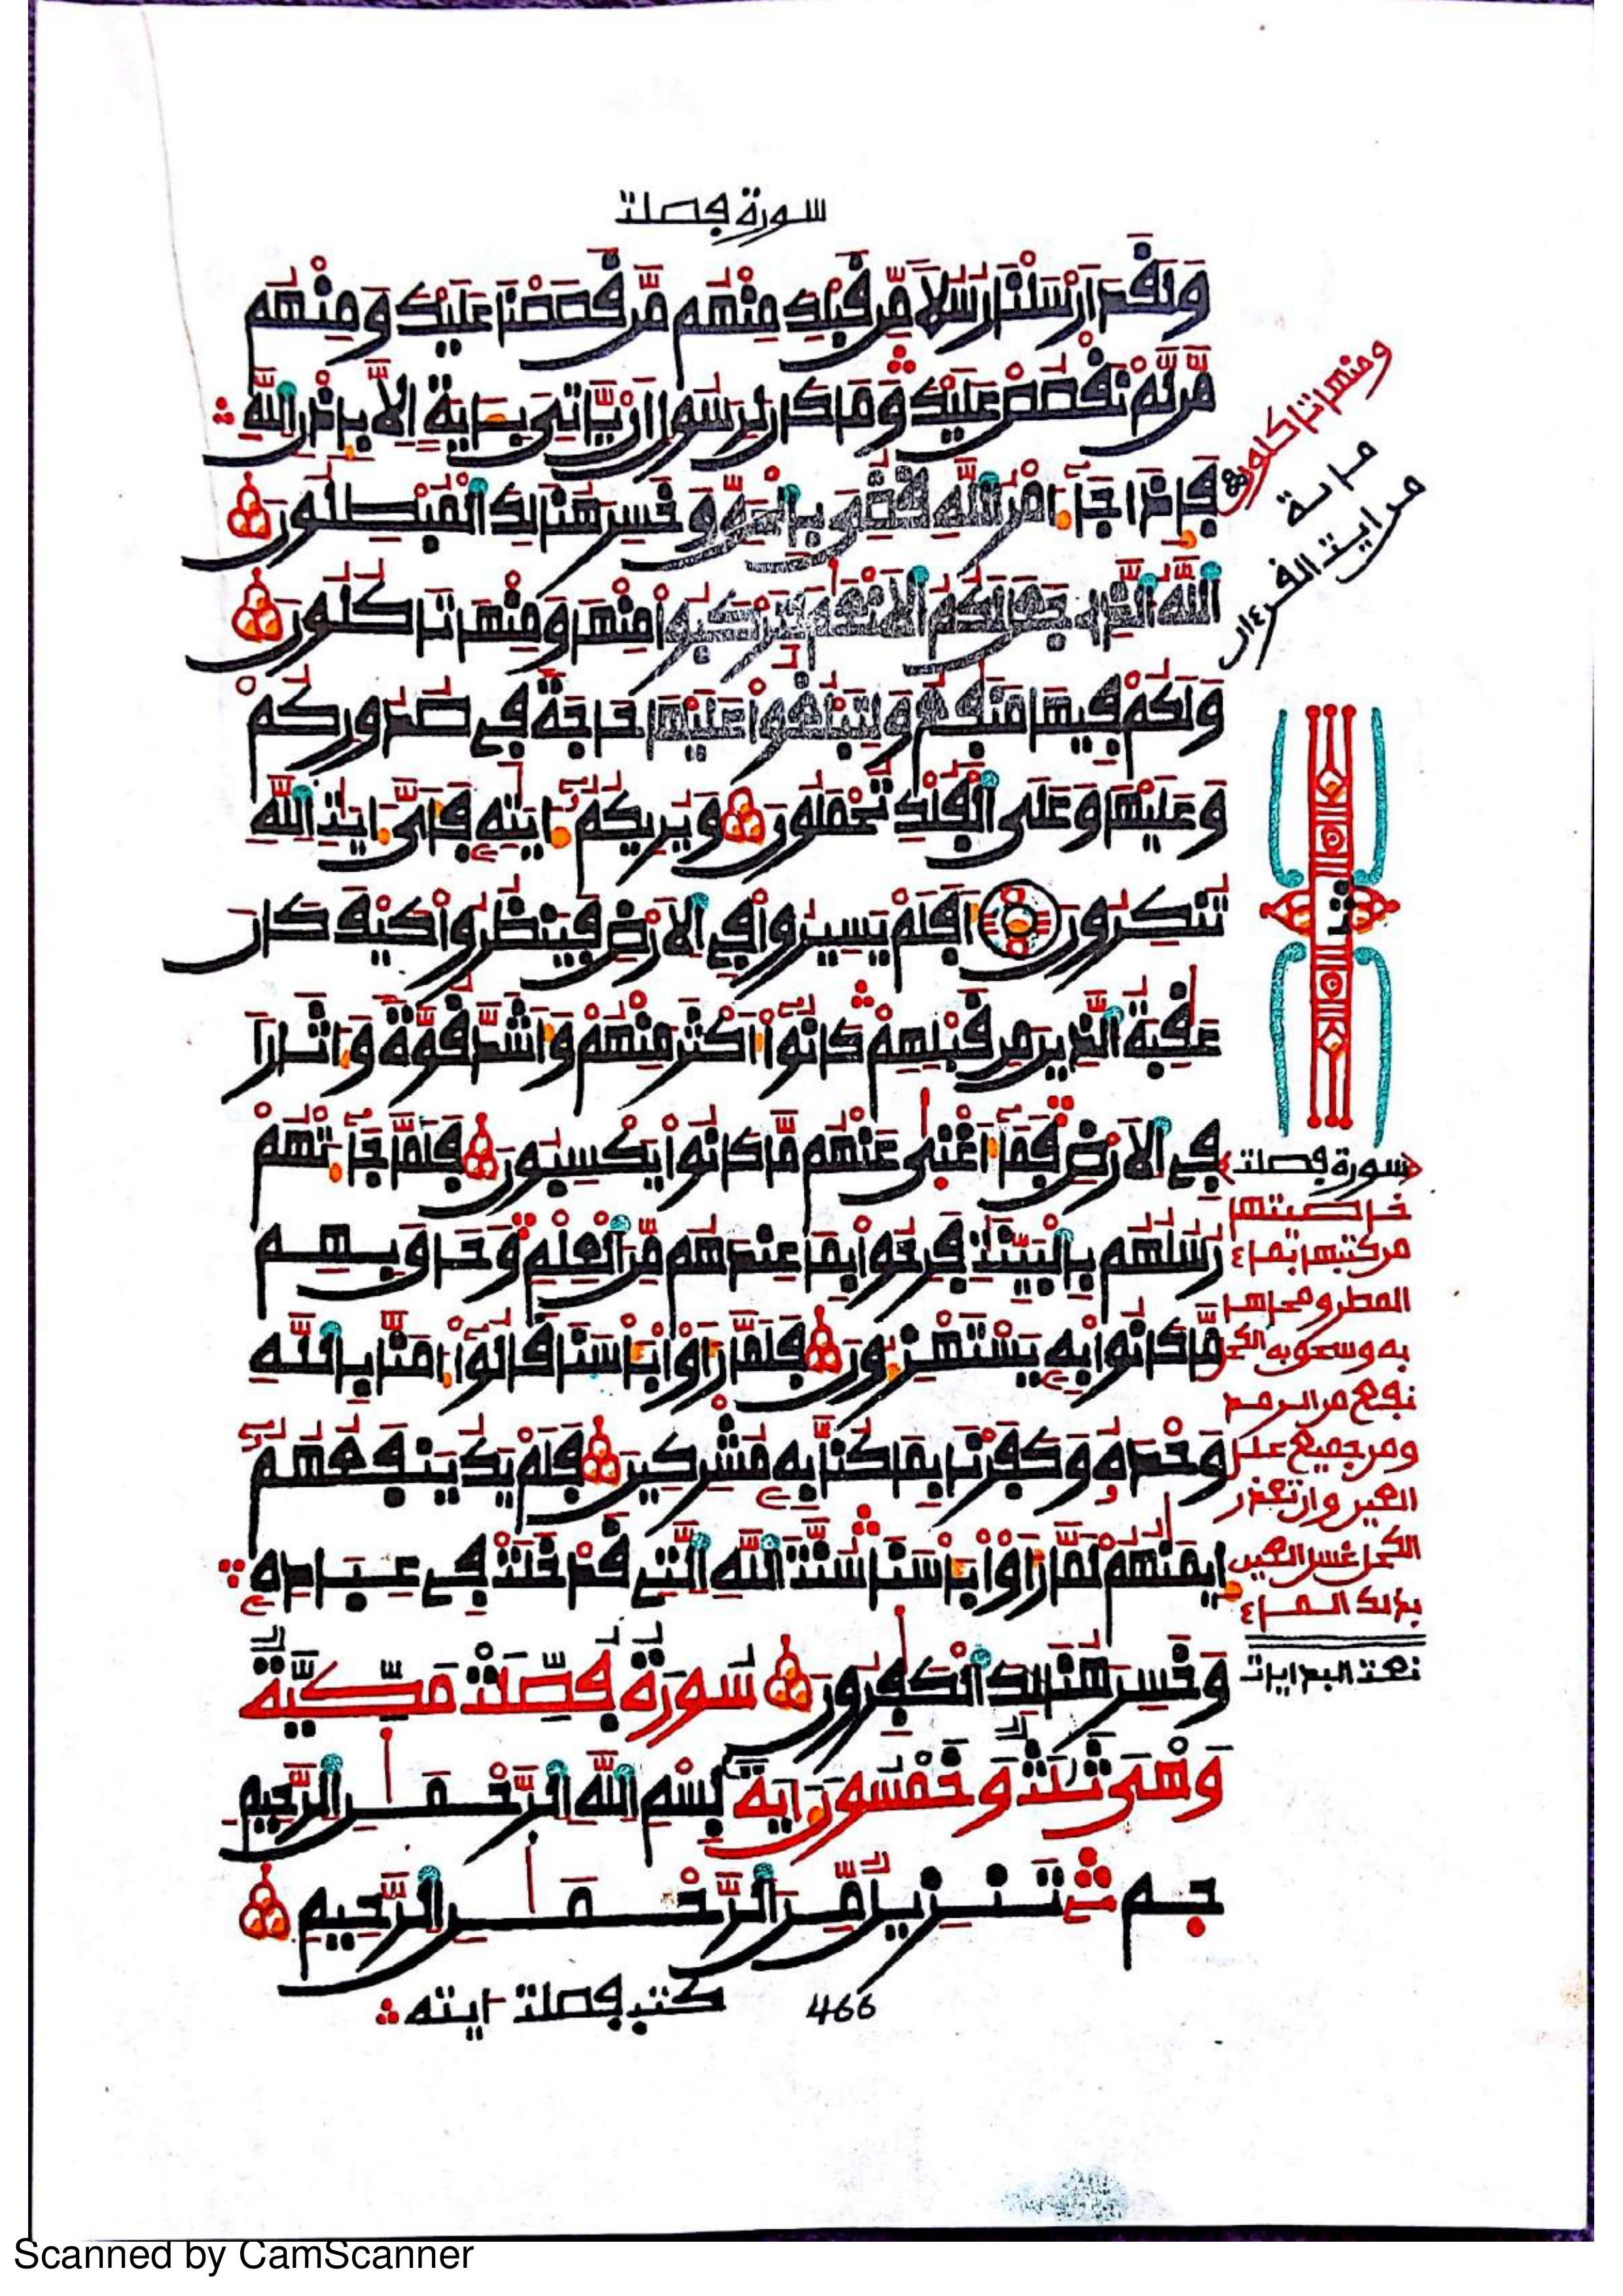 سورة فصلت
وَلَقَدَ اَرْسَلْنَا رُسُلاً مِّن قَبْلِكَ مِنْهُم مَّن قَصَصْنَا عَلَيْكَ وَمِنْهُم
مَّن لَّمْ نَقْصُصْ عَلَيْكَ وَمَا كَانَ لِرَسُولٍ اَنْ يَّاتِيَ بِـَٔايَةٍ اِلاَّ بِإِذْنِ اِللَّهِ
فَإِذَا جَآءَ امْرُ اللَّهِ قُضِيَ بِالْحَقِّ وَخَسِرَ هُنَالِكَ اَلْمُبْطِلُونَ
اَللَّهُ الذِے جَعَلَ لَكُمُ الَانْعَٰمَ لِتَرْكَبُواْ مِنْهَا وَمِنْهَا تَاكُلُونَ
وَلَكُمْ فِيهَا مَنَٰفِعُ وَلِتَبْلُغُواْ عَلَيْهَا حَاجَةً فِے صُدُورِكُمْ
وَعَلَيْهَا وَعَلَى اَلْفُلْكِ تُحْمَلُونَ وَيُرِيكُمُۥٓ ءَايَٰتِهِۦ فَأَيَّ ءَايَٰتِ اِللَّهِ
تُنكِرُونَ اَفَلَمْ يَسِيرُواْ فِے اِلَارْضِ فَيَنظُرُواْ كَيْفَ كَانَ
عَٰقِبَةُ الذِينَ مِن قَبْلِهِمْ كَانُوٓاْ أَكْثَرَ مِنْهُمْ وَأَشَدَّ قُوَّةً وَءَاثَاراً
فِے اِلَارْضِ فَمَآ أَغْنَىٰ عَنْهُم مَّا كَانُواْ يَكْسِبُونَ فَلَمَّا جَآءَتْهُمْ
رُسُلُهُم بِالْبَيِّنَٰتِ فَرِحُواْ بِمَا عِندَهُم مِّنَ اَلْعِلْمِ وَحَاقَ بِهِم
مَّا كَانُواْ بِهِۦ يَسْتَهْزِءُونَ فَلَمَّا رَأَوْاْ بَأْسَنَا قَالُوٓاْ ءَامَنَّا بِاللَّهِ
وَحْدَهُۥ وَكَفَرْنَا بِمَا كُنَّا بِهِۦ مُشْرِكِينَ فَلَمْ يَكُ يَنفَعُهُمُۥٓ
إِيمَٰنُهُمْ لَمَّا رَأَوْاْ بَأْسَنَا سُنَّتَ اَللَّهِ اِلتِے قَدْ خَلَتْ فِے عِبَادِهِۦ
وَخَسِرَ هُنَالِكَ اَلْكَٰفِرُونَ سُورَةُ فُصِّلَتْ مَكِّيَّةٌ
وَهْيَ ثَلَٰثٌ وَخَمْسُونَ ءَايَةً بِسْمِ اِللَّهِ اِلرَّحْمَٰنِ اِلرَّحِيمِ
حـم تَنزِيلٌ مِّنَ اَلرَّحْمَٰنِ اِلرَّحِيمِ
كتب فصلت ءايته
466
ومنها تاكلون
مراية
من ايت القرءان
ثمن
سورة فصلت
خاصيتها
من كتبها بماء
المطر ومحاها
به وسحق به الكحل
نفع من الرمد
ومن جميع علل
العين وان تعذر
الكحل غسل العين
بذلك الماء
نعت البدايات
Scanned by CamScanner